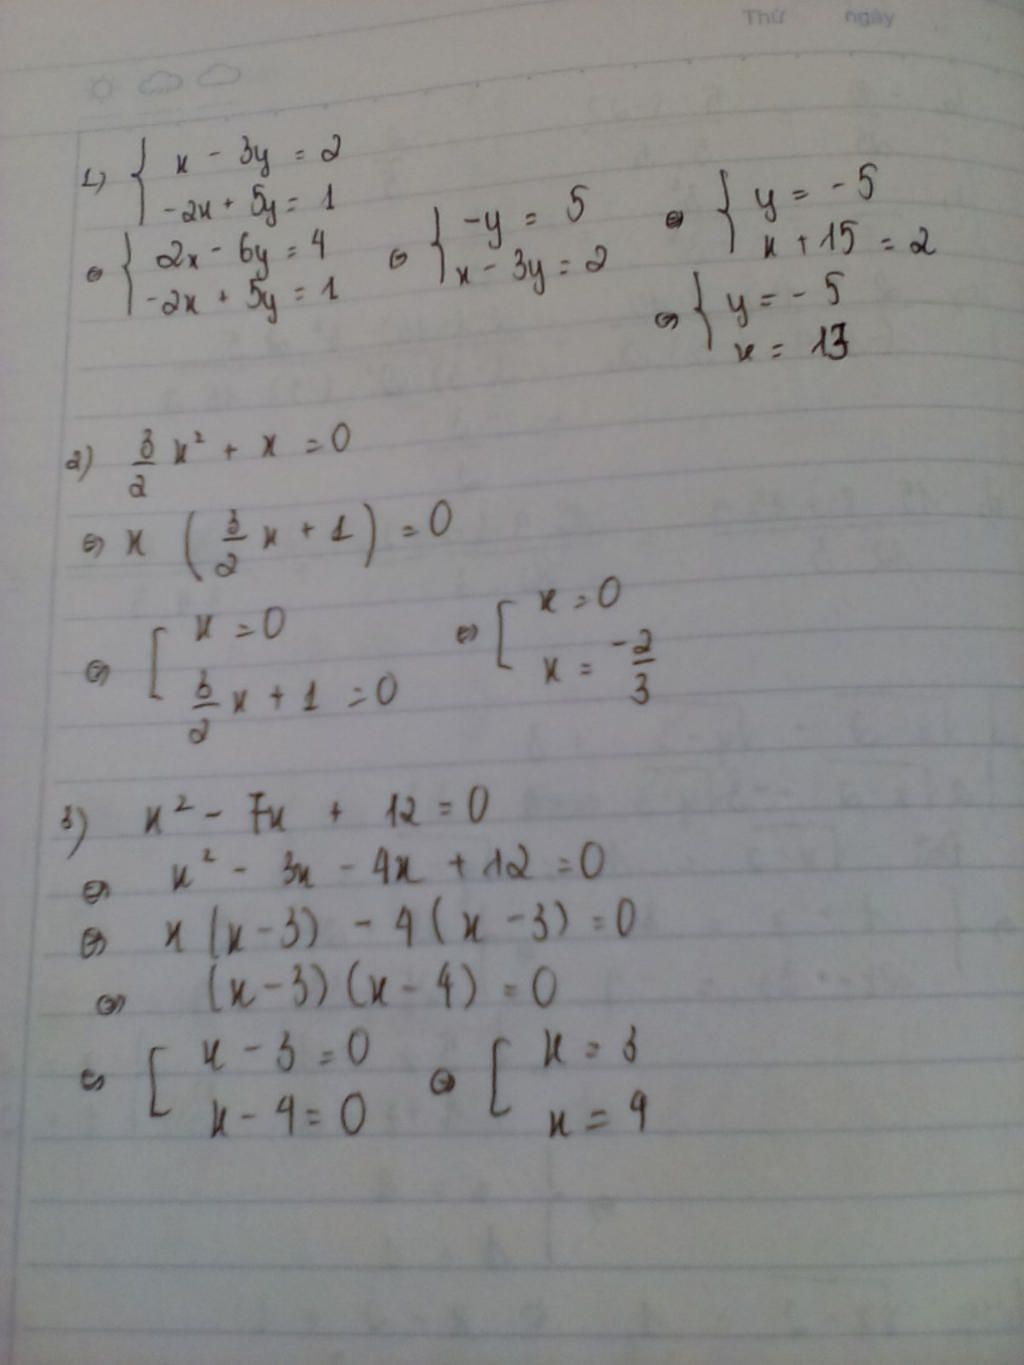 Thứ ngày
1) { x - 3y = 2
-2x + 5y = 1
⇔ { 2x - 6y = 4
-2x + 5y = 1
⇔ { -y = 5
x - 3y = 2
⇔ { y = -5
x + 15 = 2
⇔ { y = -5
x = 13
2) 3/2 x² + x = 0
⇔ x ( 3/2 x + 1 ) = 0
⇔ [ x = 0
3/2 x + 1 = 0
⇔ [ x = 0
x = -2/3
3) x² - 7x + 12 = 0
⇔ x² - 3x - 4x + 12 = 0
⇔ x (x - 3) - 4 (x - 3) = 0
⇔ (x - 3) (x - 4) = 0
⇔ [ x - 3 = 0
x - 4 = 0
⇔ [ x = 3
x = 4